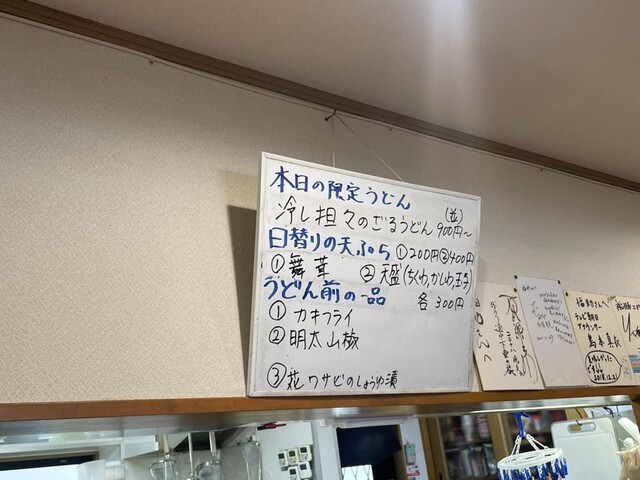 本日の限定うどん
冷し担々のざるうどん (並) 900円~
日替りの天ぷら ①200円②400円
①舞茸 ②天盛(ちくわ,かしわ,玉子)
うどん前の一品 各300円
①カキフライ
②明太山椒
③花ワサビのしょうゆ漬
テレビ朝日
アナウンサー